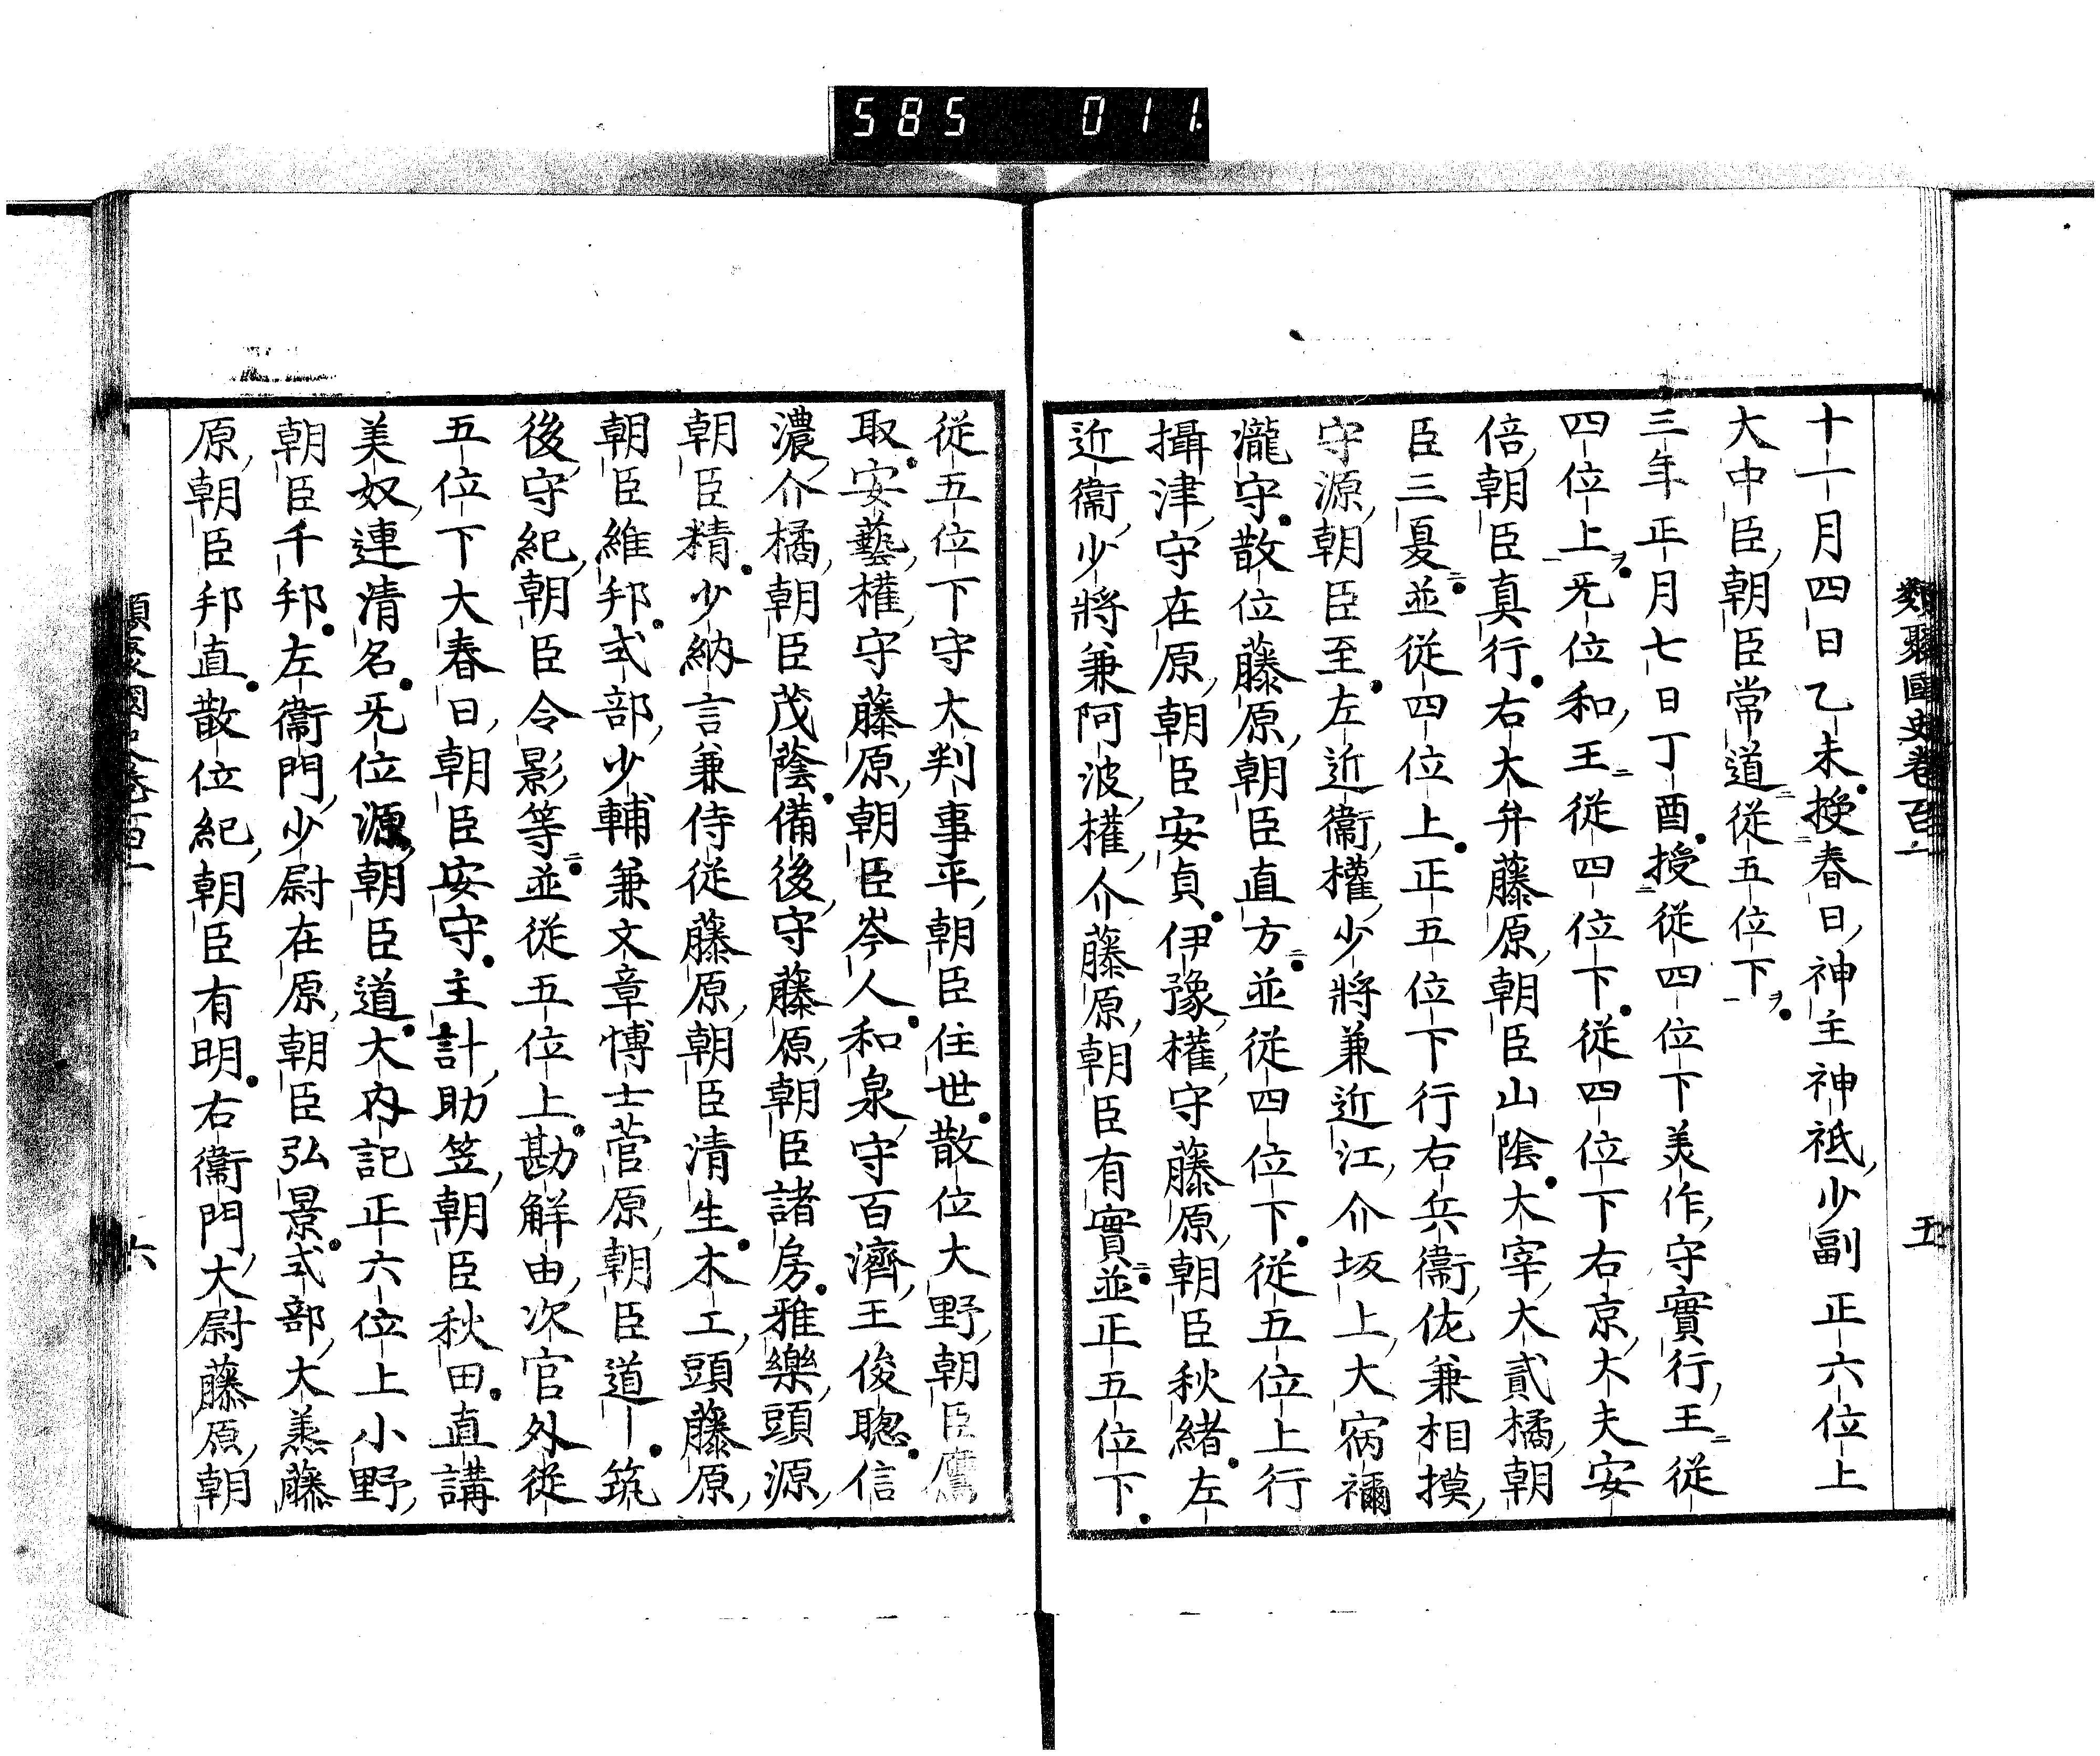 585 011
類聚國史卷百一 五
十一月四日乙未授春日神主神祇少副正六位上
大中臣朝臣常道從五位下
三年正月七日丁酉授從四位下美作守實行王從
四位上无位和王從四位下從四位下右京大夫安
倍朝臣真行右大弁藤原朝臣山陰大宰大貳橘朝
臣三夏並從四位上正五位下行右兵衞佐兼相摸
守源朝臣至左近衞權少將兼近江介坂上大宿禰
瀧守散位藤原朝臣直方並從四位下從五位上行
攝津守在原朝臣安貞伊豫權守藤原朝臣秋緒左
近衞少將兼阿波權介藤原朝臣有實並正五位下
從五位下守大判事平朝臣住世散位大野朝臣鷹
取安藝權守藤原朝臣岑人和泉守百濟王俊聰信
濃介橘朝臣茂蔭備後守藤原朝臣諸房雅樂頭源
朝臣精少納言兼侍從藤原朝臣清生木工頭藤原
朝臣維邦式部少輔兼文章博士菅原朝臣道一筑
後守紀朝臣令影等並從五位上勘解由次官外從
五位下大春日朝臣安守主計助笠朝臣秋田直講
美奴連清名无位源朝臣道大內記正六位上小野
朝臣千邦左衞門少尉在原朝臣弘景式部大羕藤
原朝臣邦直散位紀朝臣有明右衞門大尉藤原朝
類聚國史卷百一 六